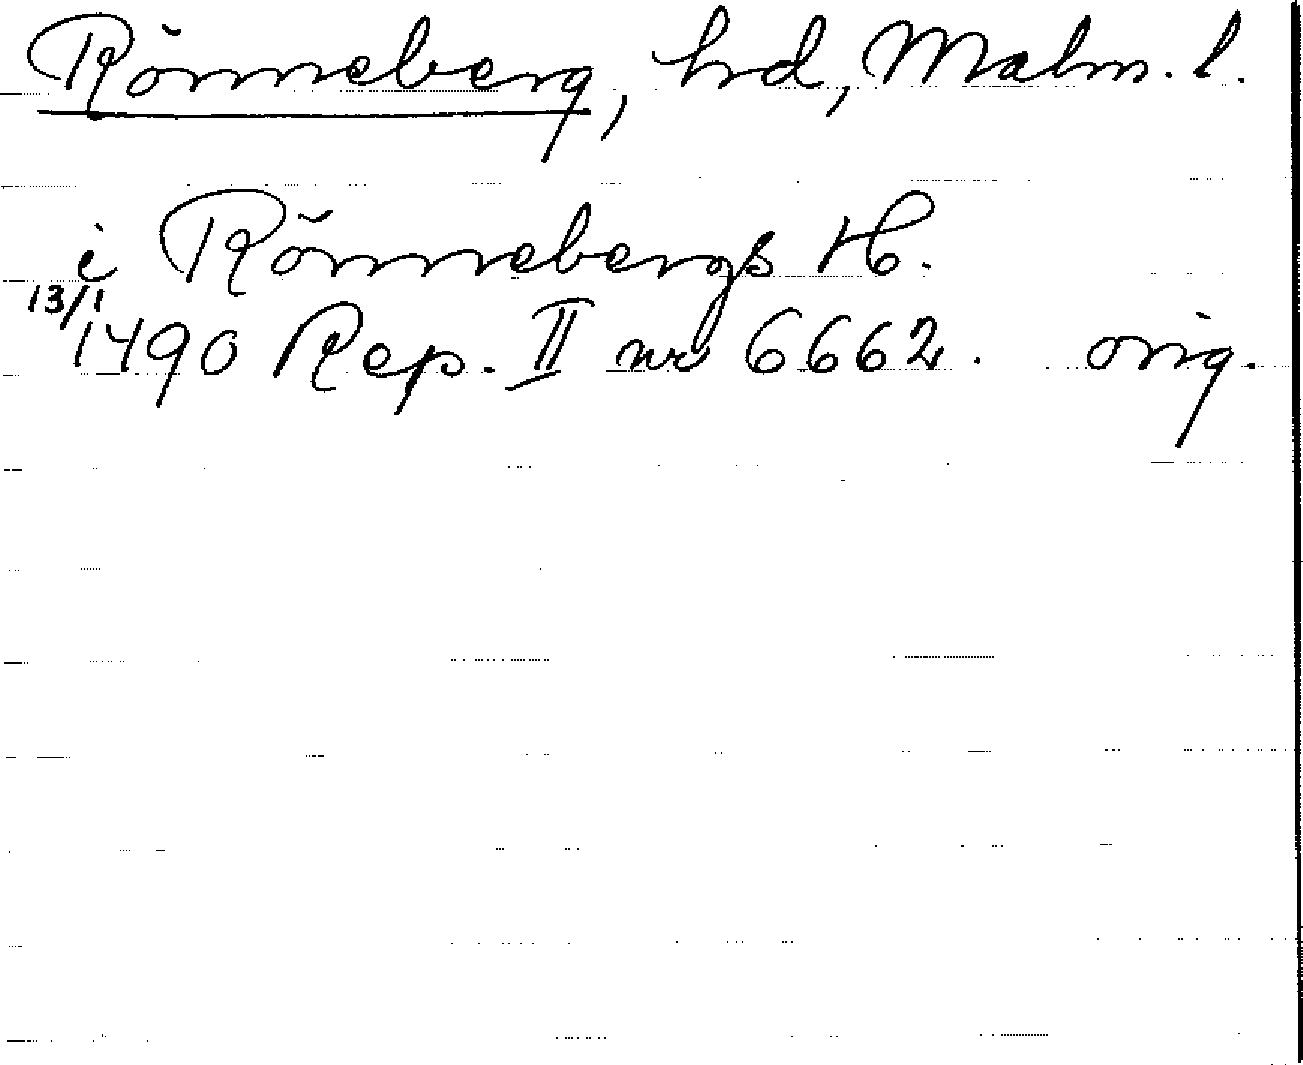 Rönneberg, hrd, Malm. l.
i Rönnebergs H.
13/1 1490 Rep. II nr 6662. orig.